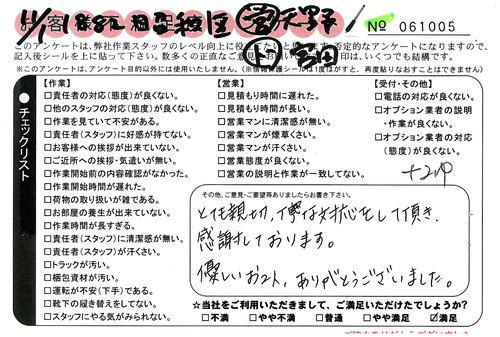 11/1
No 061005
このアンケートは、弊社作業スタッフのレベル向上に役
否定的なアンケートになりますので、
記入後シールを上に貼って下さい。数多くの正直なご意見
印は、いくつでも結構です。
※このアンケートは、アンケート目的以外には使用いたしません。(※情報保護シールは1度はがすと、再度貼りなおすことはできません)
チェックリスト
【作業】
□責任者の対応(態度)が良くない。
□他のスタッフの対応(態度)が良くない。
□作業を見ていて不安がある。
□責任者(スタッフ)に好感が持てない。
□お客様への挨拶が出来ていない。
□ご近所への挨拶・気遣いが無い。
□作業開始前の内容確認がなかった。
□作業開始時間が遅れた。
□荷物の取り扱いが雑である。
□お部屋の養生が出来ていない。
□作業時間が長すぎる。
□責任者(スタッフ)に清潔感が無い。
□責任者(スタッフ)が汗くさい。
□トラックが汚い。
□梱包資材が汚い。
□運転が不安(下手)である。
□靴下の履き替えをしてない。
□スタッフにやる気がみられない。
【営業】
□見積もり時間に遅れた。
□見積もり時間が長い。
□営業マンに清潔感が無い。
□営業マンが煙草くさい。
□営業マンが汗くさい。
□営業態度が良くない。
□営業の説明と作業が一致してない。
【受付・その他】
□電話の対応が良くない。
□オプション業者の説明・作業が良くない。
□オプション業者の対応(態度)が良くない。
その他、ご意見・ご要望等ありましたらお書き下さい。
とても親切、丁寧な対応をして頂き、
感謝しております。
優しいお2人、ありがとうございました。
☆当社をご利用いただきまして、ご満足いただけたでしょうか?
□不満 □やや不満 □普通 □やや満足 ☑満足